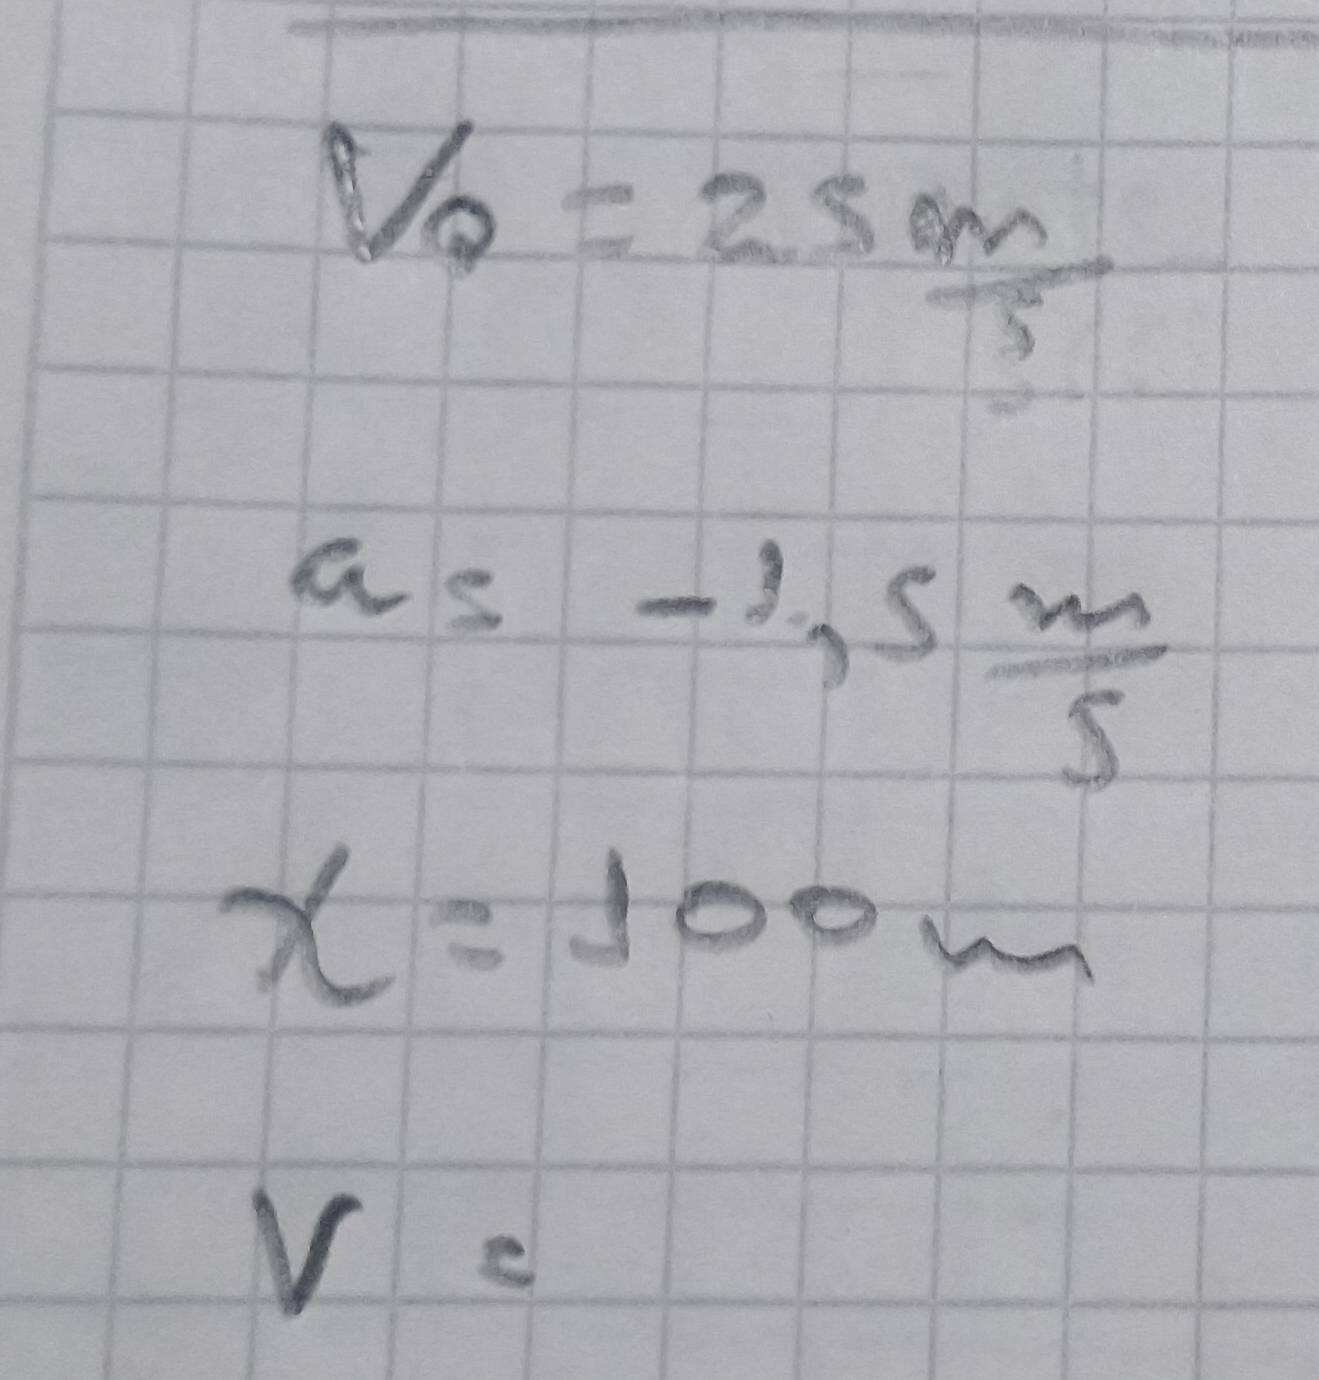 V₀ = 25 m/s
a = -1,5 m/s
x = 100 m
V =